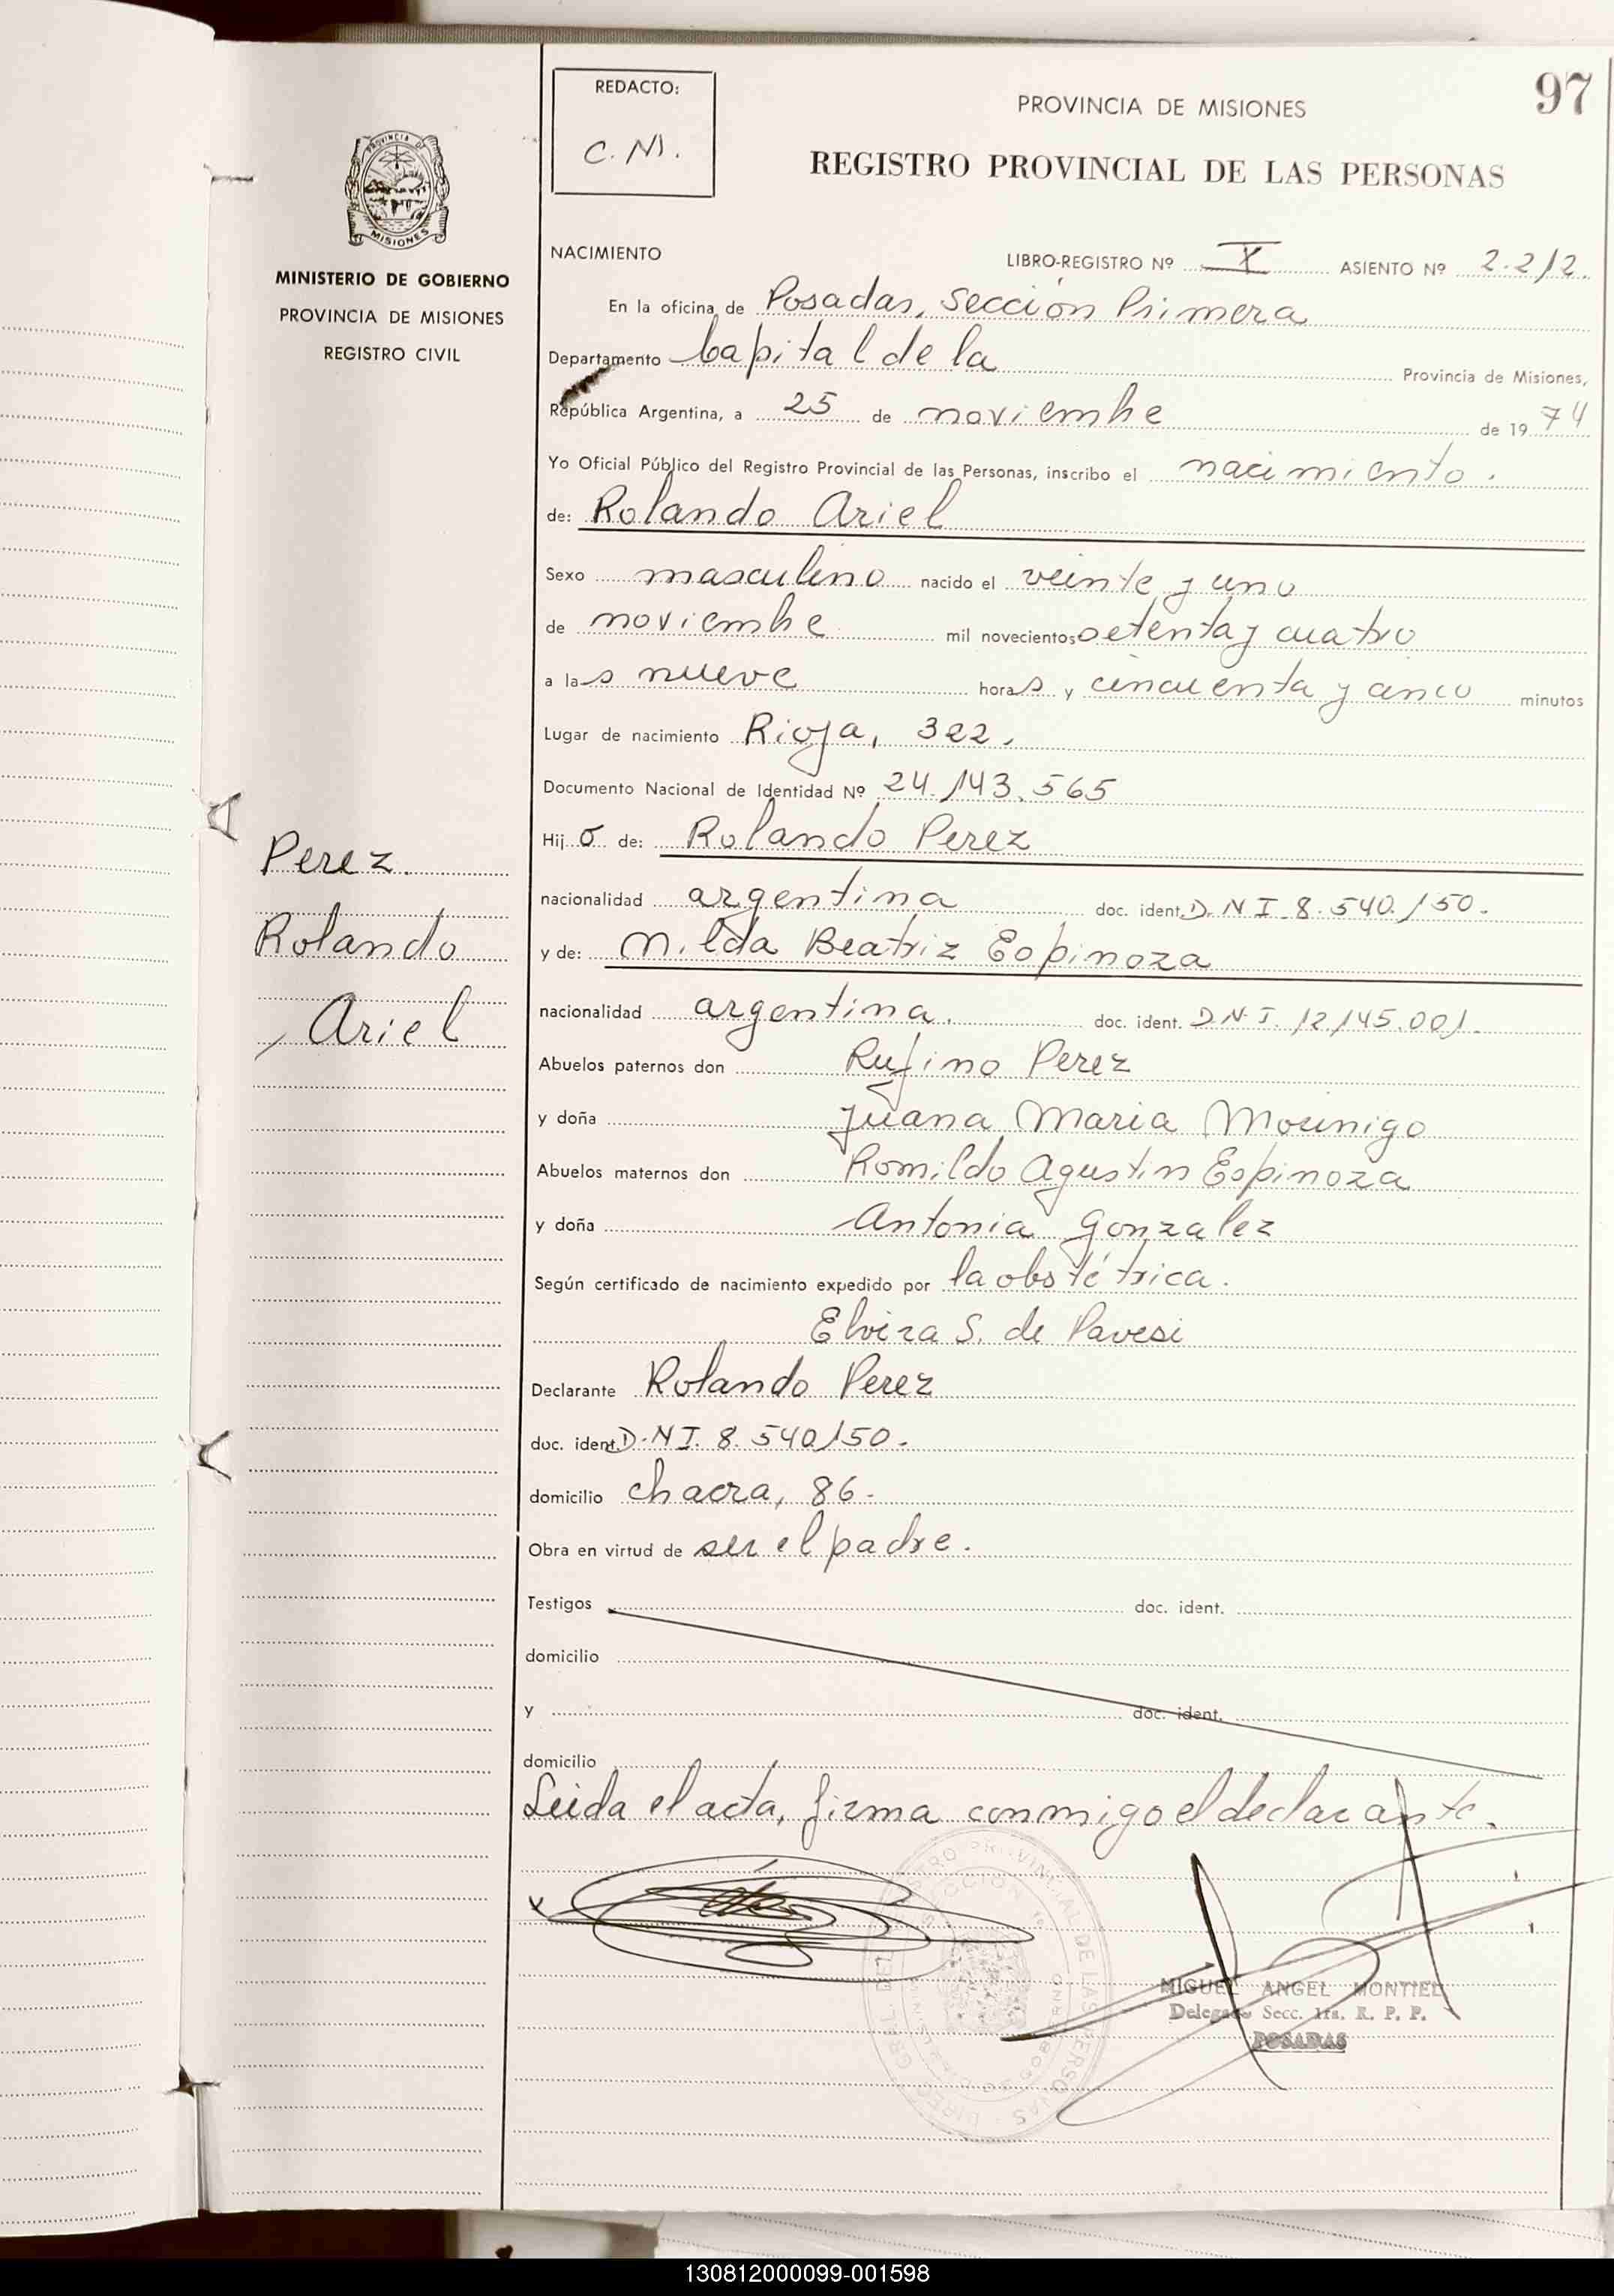 97
REDACTO:
C. M.
PROVINCIA DE MISIONES
REGISTRO PROVINCIAL DE LAS PERSONAS
PROVINCIA DE
MISIONES
MINISTERIO DE GOBIERNO
PROVINCIA DE MISIONES
REGISTRO CIVIL
NACIMIENTO LIBRO-REGISTRO Nº X ASIENTO Nº 2.212.
En la oficina de Posadas, Sección Primera
Departamento Capital de la Provincia de Misiones,
República Argentina, a 25 de noviembre de 1974
Yo Oficial Público del Registro Provincial de las Personas, inscribo el nacimiento.
de: Rolando Ariel
Sexo masculino nacido el veinte y uno
de noviembre mil novecientos setenta y cuatro
a las nueve horas y cincuenta y cinco minutos
Lugar de nacimiento Rioja, 322.
Documento Nacional de Identidad Nº 24.143.565
Hijo de: Rolando Perez
nacionalidad argentina doc. ident. D.N.I. 8.540.150.
y de: Nilda Beatriz Espinoza
nacionalidad argentina. doc. ident. D.N.I. 12.145.001.
Abuelos paternos don Rufino Perez
y doña Juana Maria Mounigo
Abuelos maternos don Romildo Agustin Espinoza
y doña Antonia Gonzalez
Según certificado de nacimiento expedido por la obstétrica.
Elvira S. de Pavesi
Declarante Rolando Perez
doc. ident. D.N.I. 8.540.150.
domicilio chacra, 86.
Obra en virtud de ser el padre.
Testigos doc. ident.
domicilio
y doc. ident.
domicilio
Leida el acta, firma conmigo el declarante.
Perez.
Rolando
Ariel
MIGUEL ANGEL MONTIEL
Delegado Secc. 1ra. R. P. P.
POSADAS
130812000099-001598